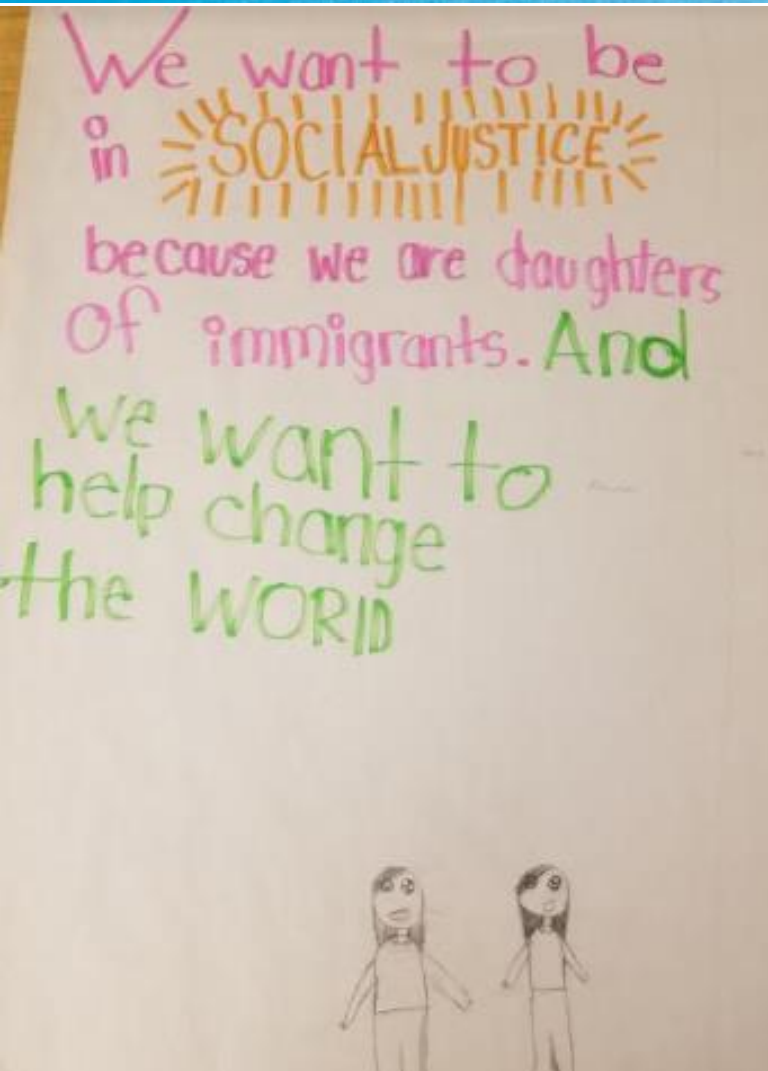 We want to be
in SOCIAL JUSTICE
because we are daughters
of immigrants. And
We want to
help change
the WORlD